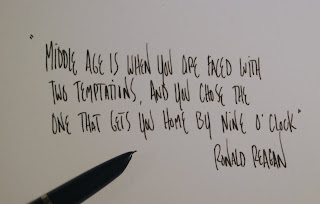 "MIDDLE AGE IS WHEN YOU ARE FACED WITH
TWO TEMPTATIONS, AND YOU CHOSE THE
ONE THAT GETS YOU HOME BY NINE O'CLOCK"
RONALD REAGAN